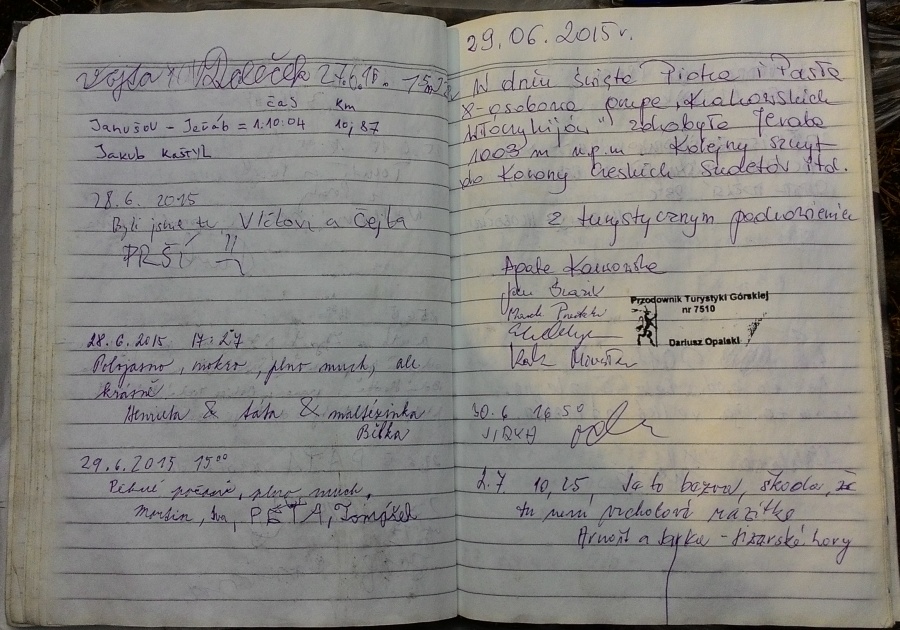 Vojta Doleček 27.6.15.
čas km
Janušov - Jeřáb = 1:10:04 10,87
Jakub KAŠTYL
28.6. 2015
Byli jsme tu Vlčtovi a Čejta
PRŠÍ !!
28.6.2015 17:27
Polojasno, mokro, plno much, ale
krásně
Henrieta & táta & maltézinka
Bilka
29.6.2015 15⁰⁰
Pěkné počasí, plno much,
Martin, Iva, PÉTA, Tomášek
29.06.2015r.
W dniu święta Piotra i Pawła
8-osobowa grupa „Krakowskich
Włóczykijów" zdobyła Jeřáb
1003 m n.p.m Kolejny szczyt
do Korony Czeskich Sudetów itd.
z turystycznym pozdrowieniem
Przodownik Turystyki Górskiej
nr 7510
Dariusz Opalski
30.6 16 50
JIRKA
2.7 10,25, Je to bazva, škoda, že
tu není vrcholové razítko
Arnošt a Jarka - Jizerské hory